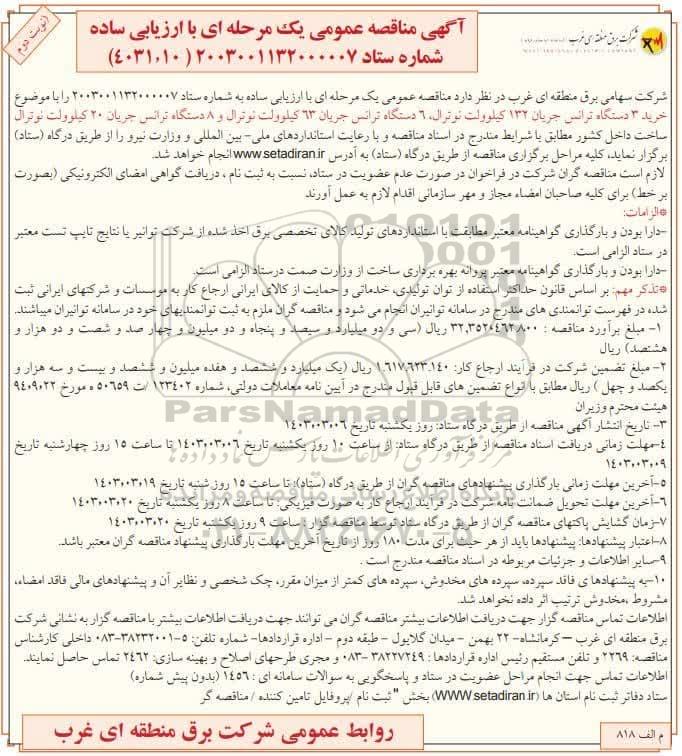 (نوبت دوم)
شرکت برق منطقه ای غرب
آگهی مناقصه عمومی یک مرحله ای با ارزیابی ساده
شماره ستاد ۲۰۰۳۰۰۱۱۳۲۰۰۰۰۰۷ ( ۴۰۳۱.۱۰)
شرکت سهامی برق منطقه ای غرب در نظر دارد مناقصه عمومی یک مرحله ای با ارزیابی ساده به شماره ستاد ۲۰۰۳۰۰۱۱۳۲۰۰۰۰۰۷ را با موضوع
خرید ۳ دستگاه ترانس جریان ۱۳۲ کیلوولت نوترال، ۶ دستگاه ترانس جریان ۶۳ کیلوولت نوترال و ۸ دستگاه ترانس جریان ۲۰ کیلوولت نوترال
ساخت داخل کشور مطابق با شرایط مندرج در اسناد مناقصه و با رعایت استانداردهای ملی- بین المللی و وزارت نیرو را از طریق درگاه (ستاد)
برگزار نماید، کلیه مراحل برگزاری مناقصه از طریق درگاه (ستاد) به آدرس www.setadiran.ir انجام خواهد شد.
لازم است مناقصه گران شرکت در فراخوان در صورت عدم عضویت در ستاد، نسبت به ثبت نام ، دریافت گواهی امضای الکترونیکی (بصورت
بر خط) برای کلیه صاحبان امضاء مجاز و مهر سازمانی اقدام لازم به عمل آورند
*الزامات:
-دارا بودن و بارگذاری گواهینامه معتبر مطابقت با استانداردهای تولید کالای تخصصی برق اخذ شده از شرکت توانیر یا نتایج تایپ تست معتبر
در ستاد الزامی است.
-دارا بودن و بارگذاری گواهینامه معتبر پروانه بهره برداری ساخت از وزارت صمت درستاد الزامی است.
*تذکر مهم: بر اساس قانون حداکثر استفاده از توان تولیدی، خدماتی و حمایت از کالای ایرانی ارجاع کار به موسسات و شرکتهای ایرانی ثبت
شده در فهرست توانمندی های مندرج در سامانه توانیران انجام می شود و مناقصه گران ملزم به ثبت توانمندیهای خود در سامانه توانیران میباشند.
۱- مبلغ برآورد مناقصه : ۳۲,۳۵۲۰۴۶۲,۸۰۰ ریال (سی و دو میلیارد و سیصد و پنجاه و دو میلیون و چهار صد و شصت و دو هزار و
هشتصد) ریال
۲- مبلغ تضمین شرکت در فرآیند ارجاع کار: ۱,۶۱۷,۶۲۳,۱۴۰ ریال (یک میلیارد و ششصد و هفده میلیون و ششصد و بیست و سه هزار و
یکصد و چهل ) ریال مطابق با انواع تضمین های قابل قبول مندرج در آیین نامه معاملات دولتی، شماره ۱۲۳۴۰۲ /ت ۵۰۶۵۹ ه مورخ ۹۴۰۹۰۲۲
هیئت محترم وزیران
۳- تاریخ انتشار آگهی مناقصه از طریق درگاه ستاد: روز یکشنبه تاریخ ۱۴۰۳۰۳۰۰۶
۴-مهلت زمانی دریافت اسناد مناقصه از طریق درگاه ستاد: از ساعت ۱۰ روز یکشنبه تاریخ ۱۴۰۳۰۳۰۰۶ تا ساعت ۱۵ روز چهارشنبه تاریخ
۱۴۰۳۰۳۰۰۹
۵-آخرین مهلت زمانی بارگذاری پیشنهادهای مناقصه گران از طریق درگاه (ستاد): تا ساعت ۱۵ روز شنبه تاریخ ۱۴۰۳۰۳۰۱۹
۶-آخرین مهلت تحویل ضمانت نامه شرکت در فرآیند ارجاع کار به صورت فیزیکی: تا ساعت ۸ روز یکشنبه تاریخ ۱۴۰۳۰۳۰۲۰
۷-زمان گشایش پاکتهای مناقصه گران از طریق درگاه ستاد توسط مناقصه گزار : ساعت ۹ روز یکشنبه تاریخ ۱۴۰۳۰۳۰۲۰
۸-اعتبار پیشنهادها: پیشنهادها باید از هر حیث برای مدت ۱۸۰ روز از تاریخ آخرین مهلت بارگذاری پیشنهاد مناقصه گران معتبر باشد.
۹-سایر اطلاعات و جزئیات مربوطه در اسناد مناقصه مندرج است .
۱۰-به پیشنهادها ی فاقد سپرده، سپرده های مخدوش، سپرده های کمتر از میزان مقرر، چک شخصی و نظایر آن و پیشنهادهای مالی فاقد امضاء،
مشروط ،مخدوش ترتیب اثر داده نخواهد شد.
اطلاعات تماس مناقصه گزار جهت دریافت اطلاعات بیشتر مناقصه گران می توانند جهت دریافت اطلاعات بیشتر با مناقصه گزار به نشانی شرکت
برق منطقه ای غرب – کرمانشاه- ۲۲ بهمن - میدان گلایول - طبقه دوم - اداره قراردادها- شماره تلفن: ۵-۳۸۲۳۲۰۰۱-۰۸۳ داخلی کارشناس
مناقصه: ۲۲۶۹ و تلفن مستقیم رئیس اداره قراردادها : ۳۸۲۲۷۲۴۹ -۰۸۳ و مجری طرحهای اصلاح و بهینه سازی: ۲۴۶۲ تماس حاصل نمایند.
اطلاعات تماس جهت انجام مراحل عضویت در ستاد و پاسخگویی به سوالات سامانه ای : ۱۴۵۶ (بدون پیش شماره)
ستاد دفاتر ثبت نام استان ها (WWW.setadiran.ir) بخش " ثبت نام /پروفایل تامین کننده / مناقصه گر
روابط عمومی شرکت برق منطقه ای غرب
م الف ۸۱۸
ParsNamadData
مرکز فرآوری اطلاعات پارس نماد داده ها
پایگاه اطلاع رسانی مناقصه و مزایده
۰۲۱-۸۸۳۴۹۶۷۰-۵